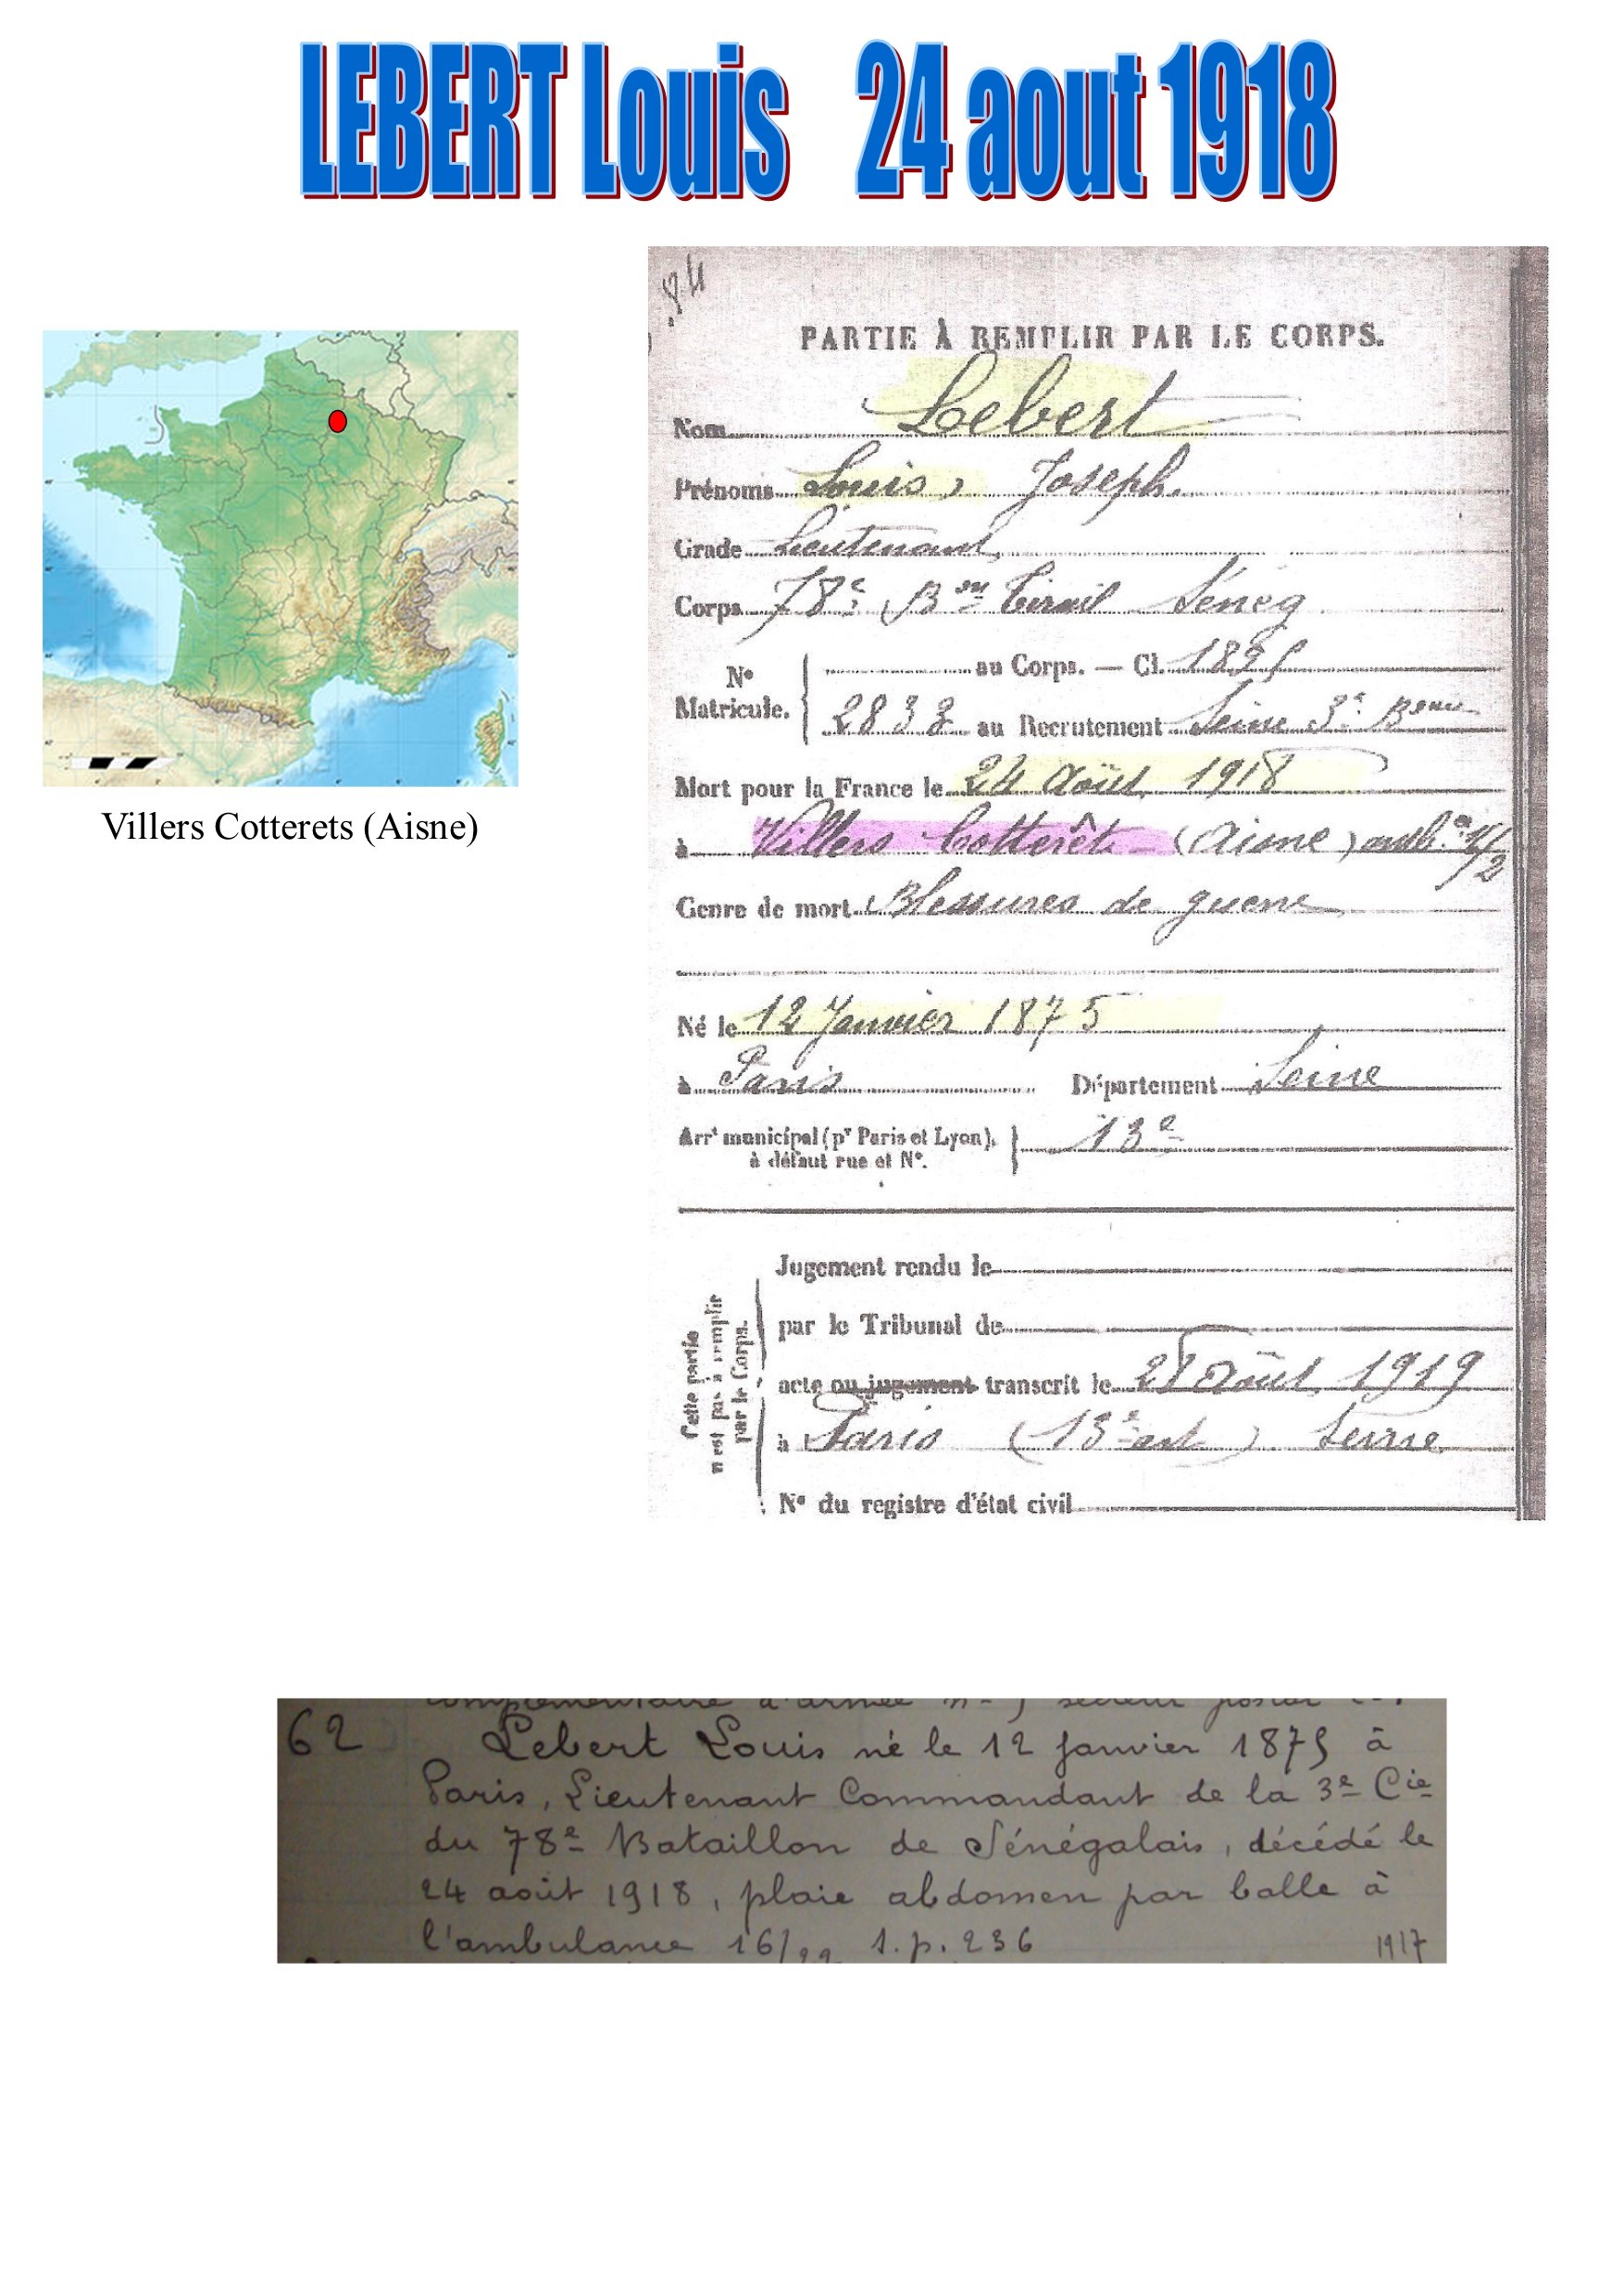 LEBERT Louis 24 aout 1918
Villers Cotterets (Aisne)
PARTIE À REMPLIR PAR LE CORPS.
Nom Lebert
Prénoms Louis, Joseph.
Grade Lieutenant
Corps 78e Bon Tirail Séneg
No Matricule. au Corps. — Cl. 1895
2833 au Recrutement Seine 3e Beau
Mort pour la France le 24 Août 1918
à Villers Cotterêts (Aisne)
Genre de mort Blessures de guerre
Né le 12 Janvier 1875
à Paris Département Seine
Arrt municipal (pr Paris et Lyon), à défaut rue et No. 13e
Cette partie n'est pas à remplir par le Corps.
Jugement rendu le
par le Tribunal de
acte ou jugement transcrit le Août 1919
à Paris (13e art) Seine
No du registre d'état civil
complémentaire d'armée secteur postal
62 Lebert Louis né le 12 janvier 1875 à
Paris, Lieutenant Commandant de la 3e Cie
du 78e Bataillon de Sénégalais, décédé le
24 août 1918, plaie abdomen par balle à
l'ambulance 16/22 s.p. 236 1917